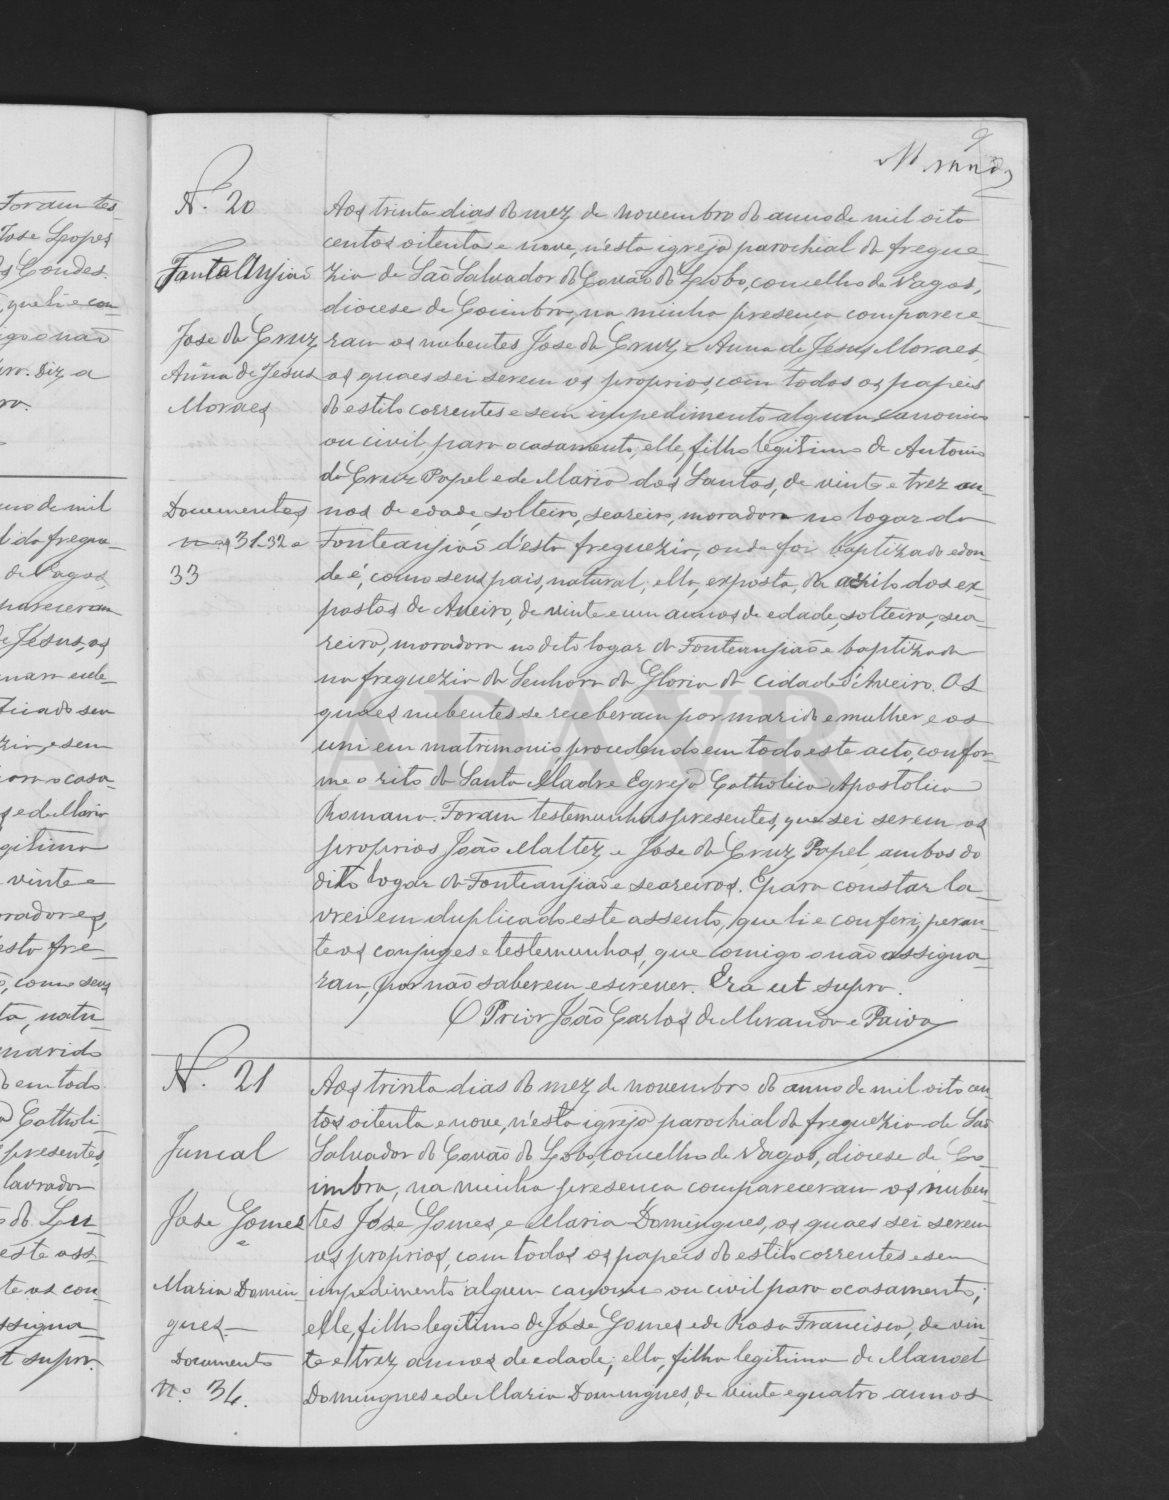 9
Miranda
N. 20
Fonte Anjiaõ
Jose da Cruz
e
Anna de Jesus
Moraes
Documentos
nos 31-32 e
33
Aos trinta dias do mez de novembro do anno de mil oito
centos oitenta e nove, n'esta igreja parochial da fregue-
zia de São Salvador do Covão do Lobo, concelho de Vagos,
diocese de Coimbra, na minha presença comparece-
ram os nubentes Jose da Cruz e Anna de Jesus Moraes
os quaes sei serem os proprios, com todos os papeis
do estilo correntes e sem impedimento algum canonico
ou civil para o casamento; elle, filho legitimo de Antonio
da Cruz Papel e de Maria dos Santos, de vinte e trez an-
nos de edade, solteiro, seareiro, morador no logar da
Fonteanjiaõ d'esta freguezia, onde foi baptizado e don-
de é, como seus pais, natural; ella, exposta, do asilo dos ex-
postos de Aveiro, de vinte e um annos de edade, solteira, sea-
reira, moradora no dito logar da Fonteanjiaõ e baptizada
na freguezia da Senhora da Gloria da cidade d'Aveiro. Os
quaes nubentes se receberam por marido e mulher e os
uni em matrimonio, procedendo em todo este acto, confor-
me o rito da Santa Madre Egreja Catholica Apostolica
Romana. Foram testemunhas presentes, que sei serem os
proprios João Maltez e Jose da Cruz Papel, ambos do
dito logar da Fonteanjiaõ e seareiros. E para constar la-
vrei em duplicado este assento, que li e conferi, peran-
te os conjuges e testemunhas, que comigo o não assigna-
ram, por não saberem escrever. Era ut supra.
O Prior João Carlos de Miranda e Paiva
N. 21
Juncal
Jose Gomes
e
Maria Domin-
gues
Documento
N.o 34.
Aos trinta dias do mez de novembro do anno de mil oito cen-
tos oitenta e nove, n'esta igreja parochial da freguezia de São
Salvador do Covão do Lobo, concelho de Vagos, diocese de Co-
imbra, na minha presença compareceram os nuben-
tes Jose Gomes, e Maria Domingues, os quaes sei serem
os proprios, com todos os papeis do estilo correntes e sem
impedimento algum canonico ou civil para o casamento;
elle, filho legitimo de Jose Gomes e de Rosa Francisca, de vin-
te e trez annos de edade; ella, filha legitima de Manoel
Domingues e de Maria Domingues, de vinte e quatro annos
ADAVR